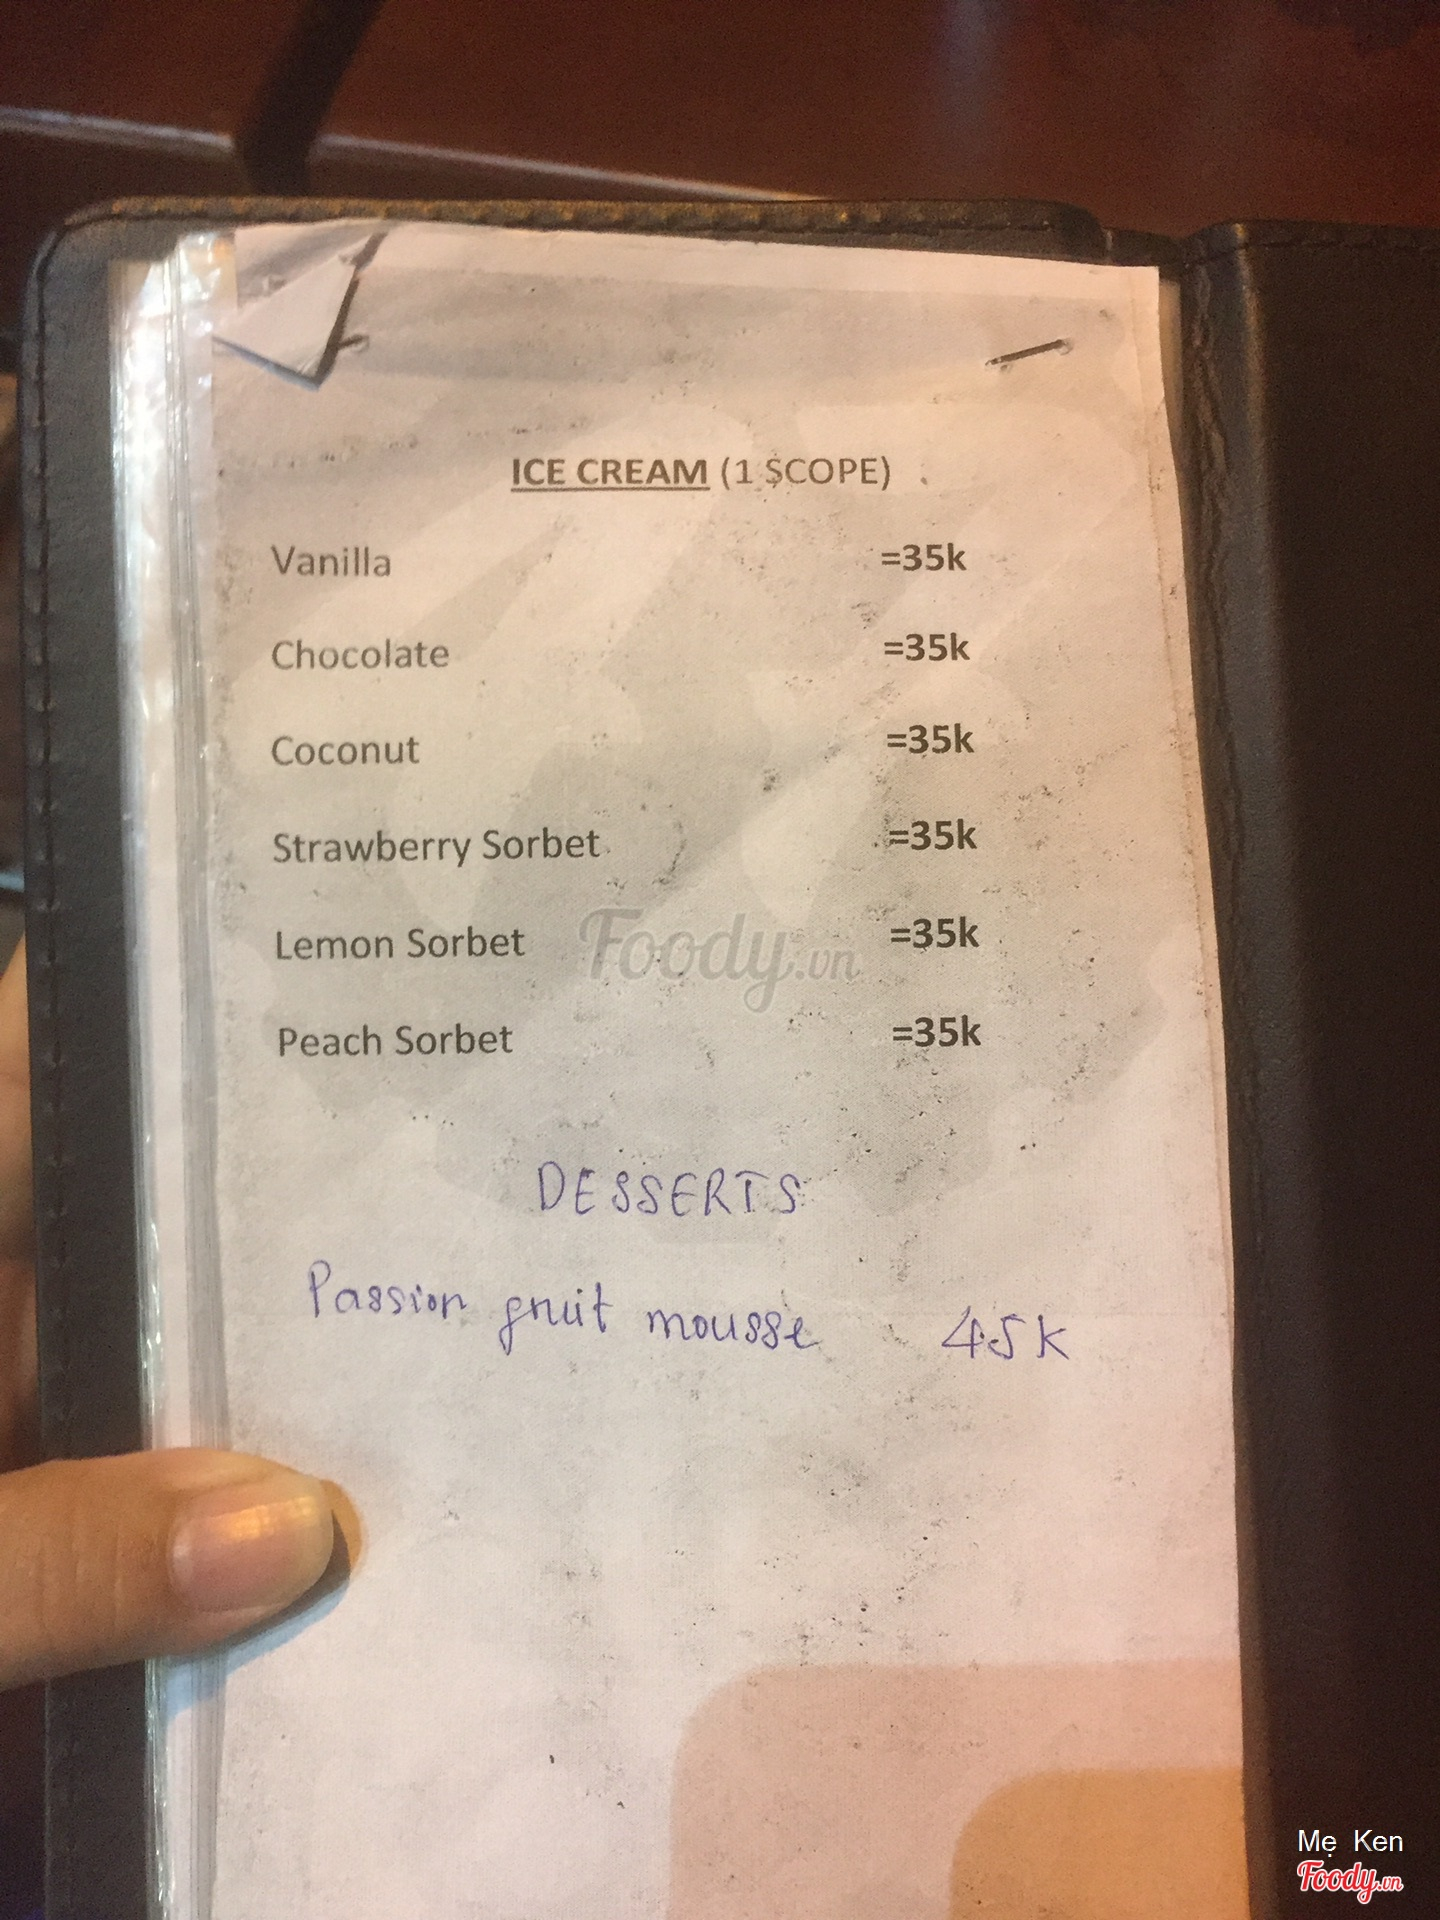 ICE CREAM (1 SCOPE)
Vanilla =35k
Chocolate =35k
Coconut =35k
Strawberry Sorbet =35k
Lemon Sorbet =35k
Foody.vn
Peach Sorbet =35k
DESSERTS
Passion fruit mousse 45k
Mẹ Ken
Foody.vn